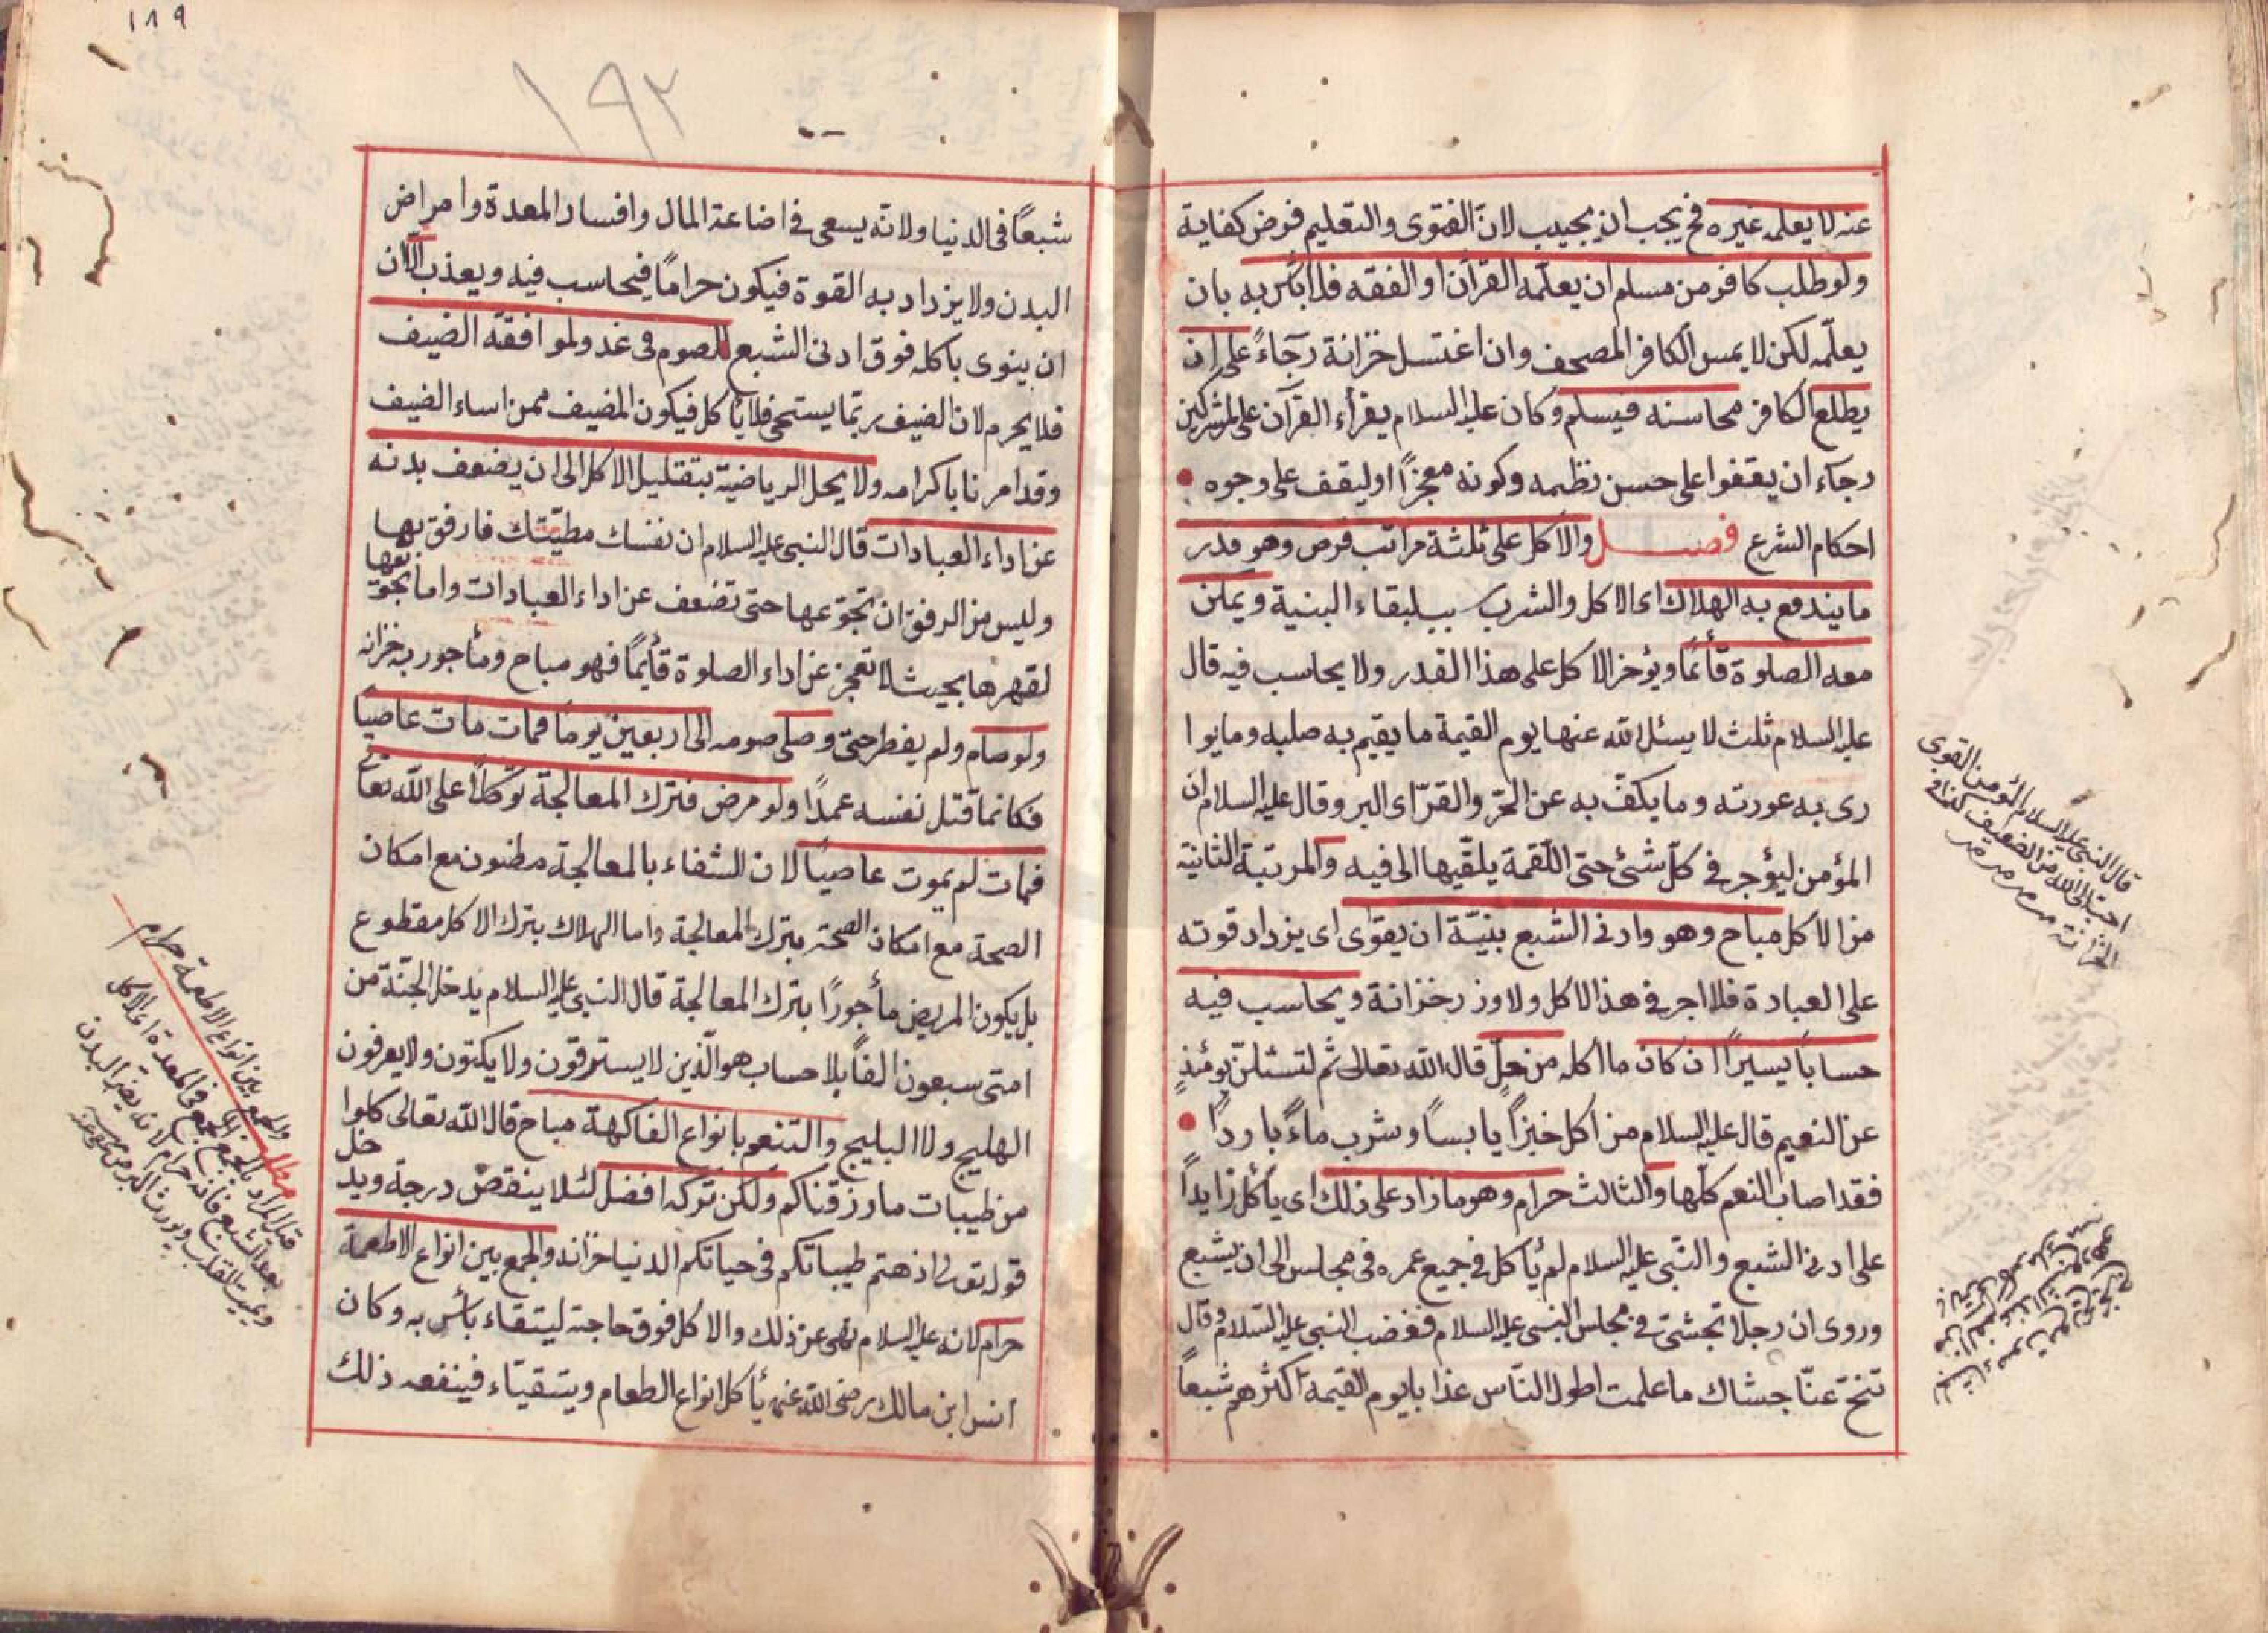 عنه لا يعلمه غيره فح يجب ان يجيب لان الفتوى والتعليم فرض كفاية
ولو طلب كافر من مسلم ان يعلّمه القرآن او الفقه فلا بأس به بان
يعلّمه لكن لا يمس الكافر المصحف وان اغتسل خزانة رجاءً على ان
يطلع الكافر محاسنه فيسلم وكان عليه السلام يقرأ القرآن على المشركين
رجاء ان يقفوا على حسن نظمه وكونه معجزًا او ليقف على وجوه
احكام الشرع فصل والاكل على ثلثة مراتب فرض وهو قدر
ما يندفع به الهلاك اى الاكل والشرب لبقاء البنية ويمكن
معه الصلوة قائمًا ويؤجر الاكل على هذا القدر ولا يحاسب فيه قال
عليه السلام ثلث لا يسئل الله عنها يوم القيمة ما يقيم به صلبه وما يوا
رى به عورته وما يكفّ به عن الحرّ والقرّ اى البر وقال عليه السلام ان
المؤمن ليؤجر فى كلّ شئ حتى اللّقمة يلقّيها الى فيه والمرتبة الثانية
من الاكل مباح وهو وادنى الشبع بنيّة ان يقوى اى يزداد قوته
على العبادة فلا اجر فى هذا الاكل ولا وزر خزانة ويحاسب فيه
حسابًا يسيرًا ان كان ما اكله من حلّ قال الله تعالى ثم لتسئلنّ يومئذٍ
عن النعيم قال عليه السلام من اكل خبزًا يابسًا وشرب ماءً باردًا
فقد اصاب النعم كلّها والثالث حرام وهو ما زاد على ذلك اى يأكل زايدًا
على ادنى الشبع والنّبى عليه السلام لم يأكل فى جميع عمره فى مجلس الى ان يشبع
وروى ان رجلا تجشى فى مجلس النبى عليه السلام فغضب النبى عليه السّلام وقال
تنحّ عنّا جشاك ما علمت اطول النّاس عذابا يوم القيمة اكثرهم شبعًا
قال النبى عليه السلام المؤمن القوى
احب الى الله من الضعيف كذا فى
الخزانة
١٨٩
١٩٢
شبعًا فى الدنيا ولانّه يسعى فى اضاعة المال وافساد المعدة وامراض
البدن ولا يزداد به القوة فيكون حرامًا فيحاسب فيه ويعذب الاان
ان ينوى باكله فوق ادنى الشبع للصوم فى غد ولموافقة الضيف
فلا يحرم لان الضيف ربّما يستحى فلا يأكل فيكون المضيف ممن اساء الضيف
وقد امرنا باكرامه ولا يحل الرياضية بتقليل الاكل الى ان يضعف بدنه
عن اداء العبادات قال النبى عليه السلام ان نفسك مطيّتك فارفق بها
وليس من الرفق ان تجوّعها حتى تضعف عن اداء العبادات واما تجويعها
لقهرها بحيث لا تعجز عن اداء الصلوة قائمًا فهو مباح ومأجور به خزانه
ولو صام ولم يفطر حتى وصل صومه الى اربعين يومًا فمات مات عاصيًا
فكانما قتل نفسه عمدًا ولو مرض فترك المعالجة توكلًا على الله تعا
فمات لم يموت عاصيًا لان الشفاء بالمعالجة مظنون مع امكان
الصحة مع امكان الصحة بترك المعالجة واما الهلاك بترك الاكل مقطوع
بل يكون المريض مأجورًا بترك المعالجة قال النبى عليه السلام يدخل الجنّة من
امتى سبعون الفًا بلا حساب هو الّذين لا يسترقون ولا يكتون ولا يعرفون
الهليج ولا البليج والتنعم بانواع الفاكهة مباح قال الله تعالى كلوا
من طيبات ما رزقناكم ولكن تركه افضل لئلا ينقص درجة ويدخل
قوله تعالى اذهبتم طيباتكم فى حياتكم الدنيا خزانه والجمع بين انواع الاطعمة
حرام لانه عليه السلام نهى عن ذلك والاكل فوق حاجته ليتقاء بأس به وكان
انس ابن مالك رضى الله عنه يأكل انواع الطعام ويتقياء فينفعه ذلك
والجمع بين انواع الاطعمة حرام